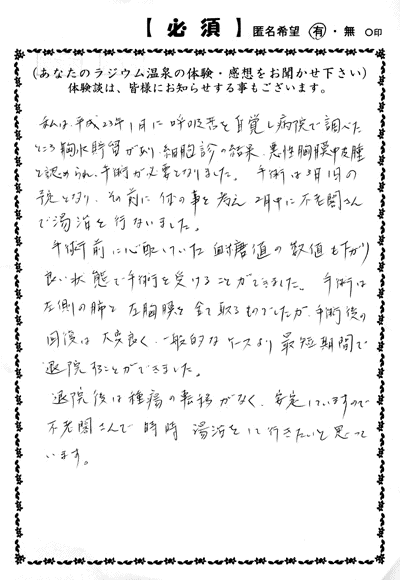 【必須】 匿名希望 有・無 ○印
(あなたのラジウム温泉の体験・感想をお聞かせ下さい)
体験談は、皆様にお知らせする事もございます。
私は、平成23年1月に呼吸苦を自覚し病院で調べた
ところ胸水貯留があり、細胞診の結果、悪性胸膜中皮腫
と認められ、手術が必要となりました。手術は3月1日の
予定となり、その前に体の事を考え2月中に不老閣さん
で湯治を行ないました。
手術前に心配していた血糖値の数値も下がり
良い状態で手術を受けることができました。手術は
左側の肺と左胸膜を全て取るものでしたが、手術後の
回復は大変良く、一般的なケースより最短期間で
退院することができました。
退院後は腫瘍の転移がなく、安定していますので
不老閣さんで時時湯治をして行きたいと思って
います。